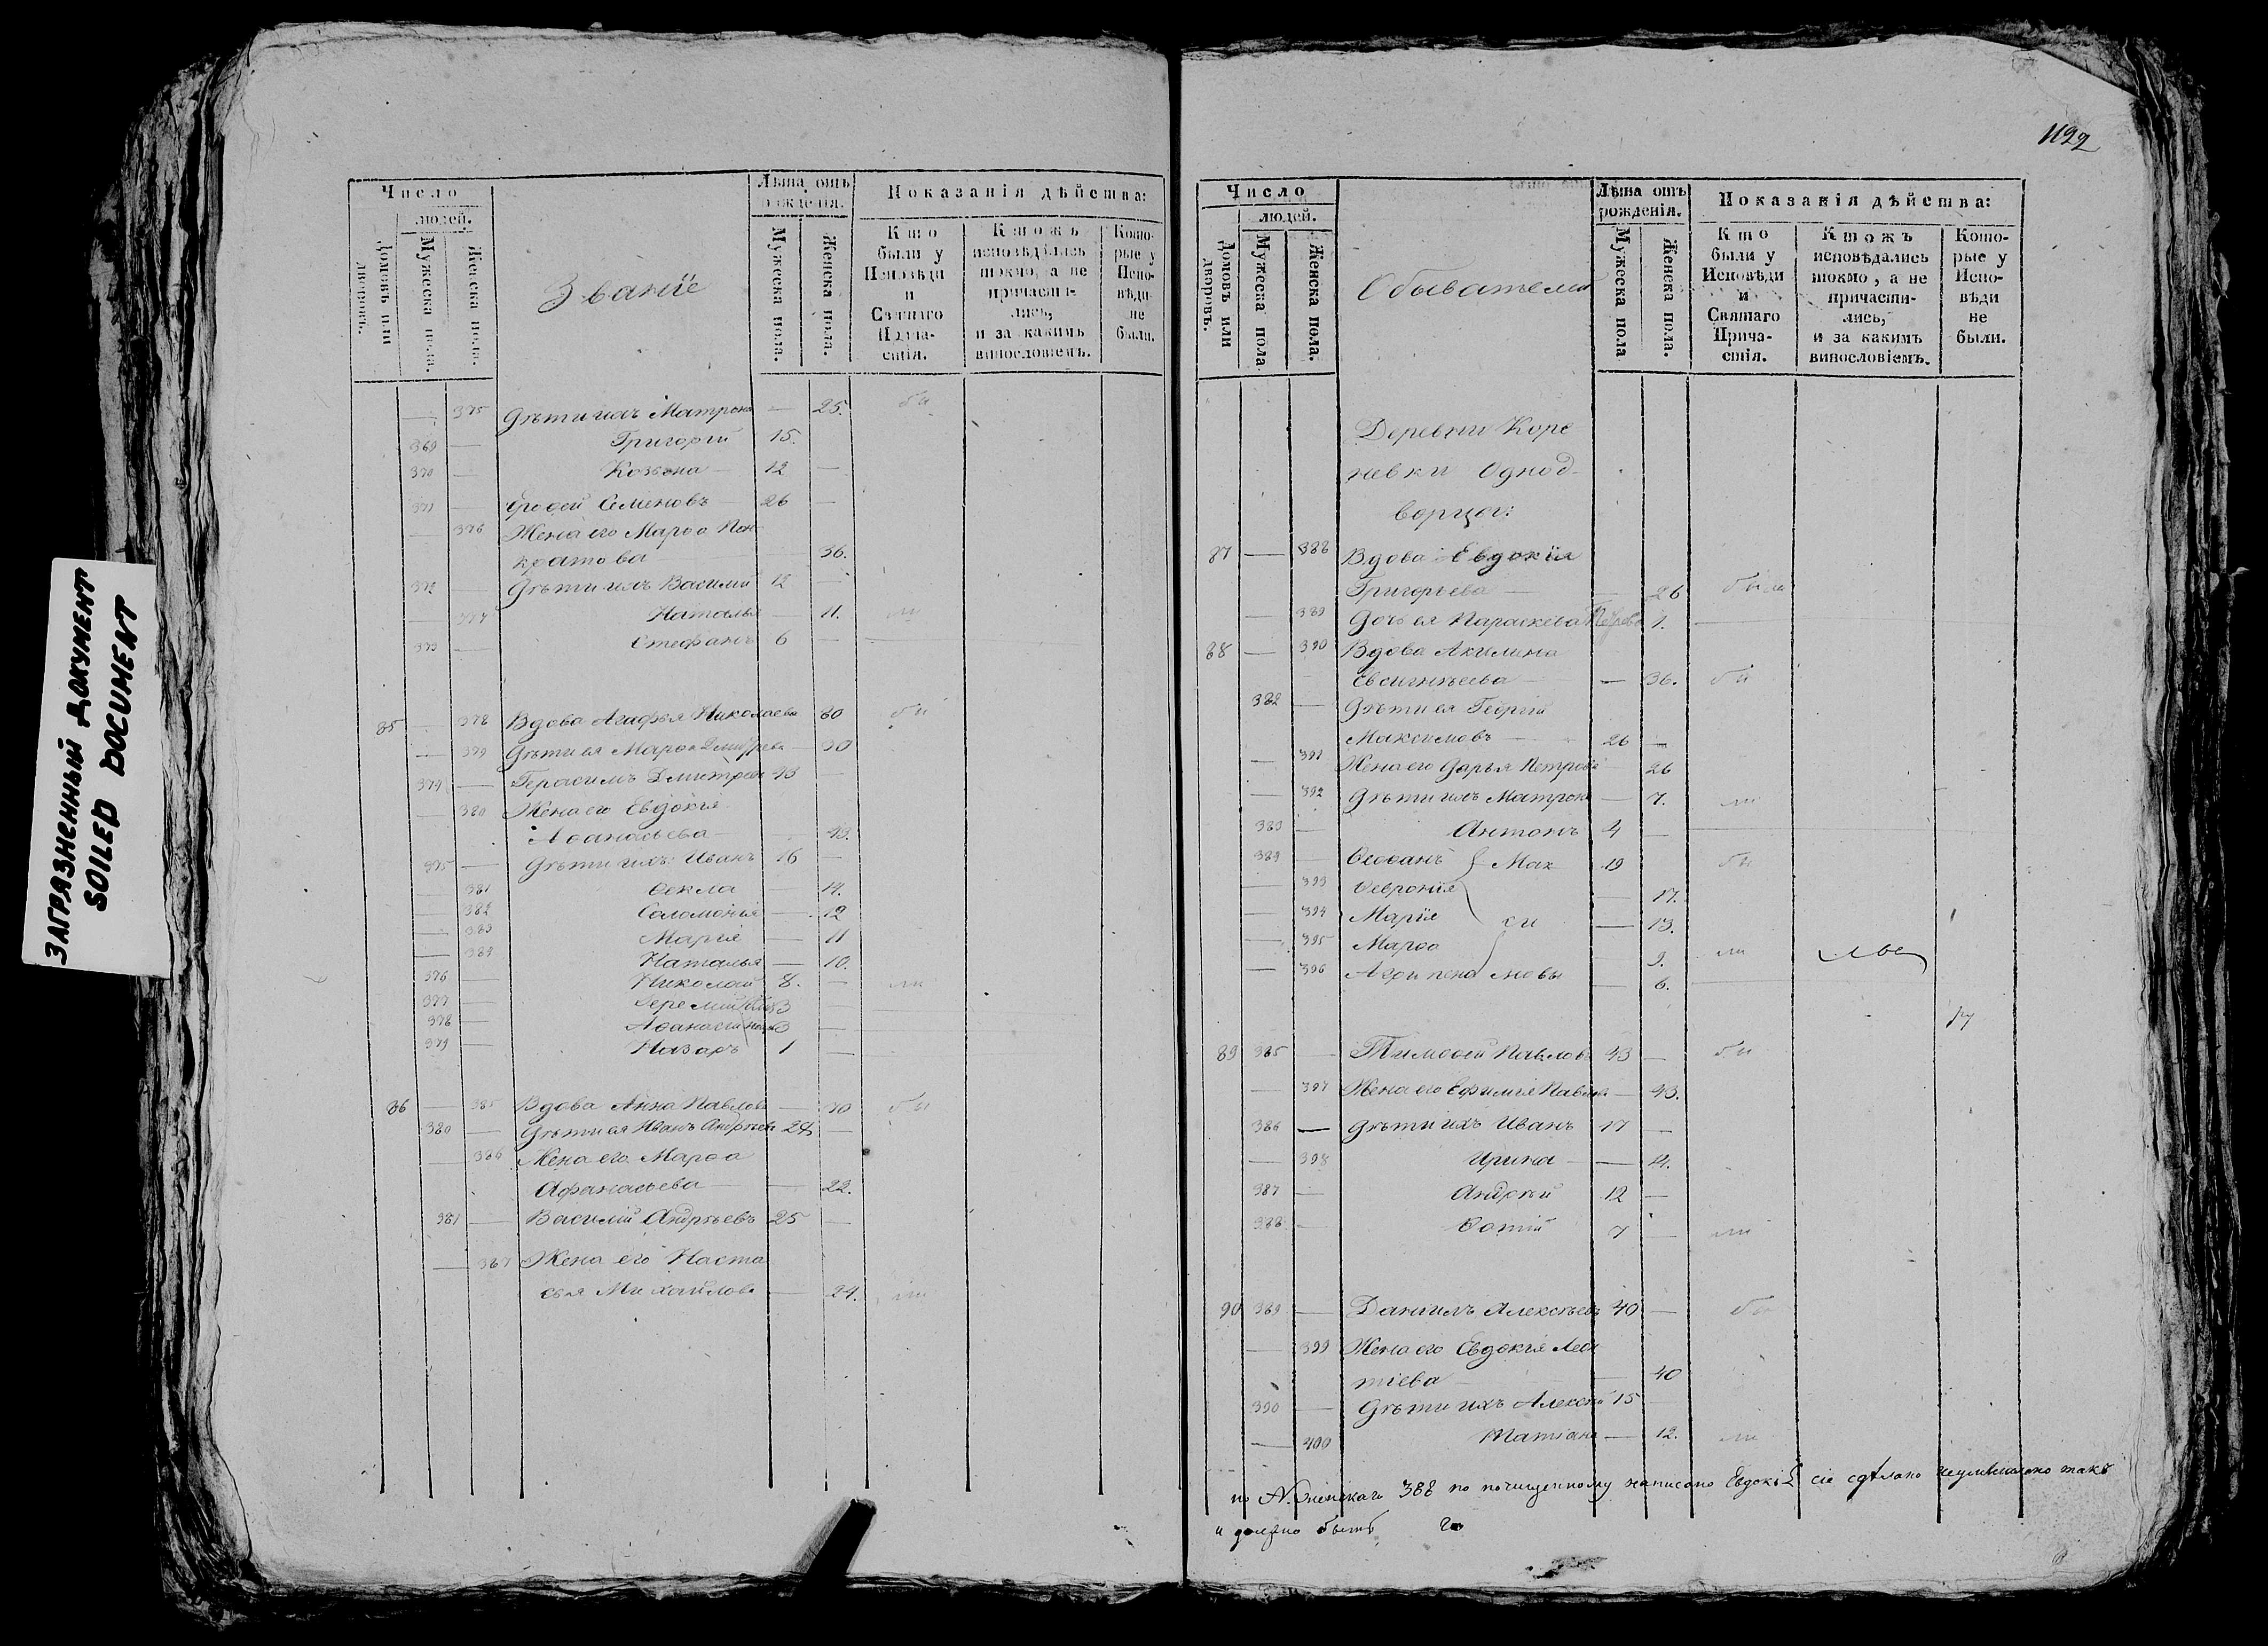 ЗАГРЯЗНЕННЫЙ ДОКУМЕНТ
SOILED DOCUMENT
Число
людей.
Домовъ или дворовъ.
Мужеска пола.
Женска пола.
Званіе
Лѣта отъ рожденія.
Мужеска пола.
Женска пола.
Показанія дѣйства:
Кто были у Исповѣди и Святаго Прича-стія.
Ктожъ исповѣдались токмо, а не причасти-лись, и за какимъ винословіемъ.
Кото-рые у Испо-вѣди не были.
375 Дѣти ихъ Матрона — 25. бы
369 — Григорій 15.
370 — Козьма — 12 —
371 — Семеновъ — 26 —
— 376 Жена его Марѳа Пан
кратова 36.
372 — Дѣти ихъ Василий 12 —
— 377 Наталья — 11. ли
373 — Стефанъ 6 —
85 — 378 Вдова Агафья Николаева 60 бы
— 379 Дѣти ея Марѳа — 30
374 — Герасимъ Дмитрiев 43 —
— 380 Жена его Евдокія
Аѳанасьева — 43.
375 — Дѣти ихъ Иванъ 16 —
— 381 Ѳекла — 14.
— 382 Саломонія — 12
— 383 Марія — 11
— 384 Наталья — 10.
376 — Николай 8. — ли
377 — 3 —
378 — Аѳанасій 3 —
379 — Назаръ 1 —
86 — 385 Вдова Анна Павлова — 50 бы
380 — Дѣти ея Иванъ Андрѣевъ 24 —
— 386 Жена его Марѳа
Афанасьева — 22.
381 — Василій Андрѣевъ 25 —
— 387 Жена его Наста
сья Михайлова — 24. ли
1122
Число
людей.
Домовъ или дворовъ.
Мужеска пола
Женска пола.
Обыватели
Лѣта отъ рожденія.
Мужеска пола
Женска пола.
Показанія дѣйства:
Кто были у Исповѣди и Святаго Прича-стія.
Ктожъ исповѣдались токмо, а не причасти-лись, и за какимъ винословіемъ.
Кото-рые у Испо-вѣди не были.
Деревни Коре
невки Однод
ворцы:
87 — 388 Вдова Евдокія
Григорьева — 26 была
— 389 Дочь ея Параскева 1.
88 — 390 Вдова Акилина
Евсигнѣева — 36. бы
382 — Дѣти ея Георгій
Максимовъ — 26 —
— 391 Жена его Дарья Петрова 26
— 392 Дѣти ихъ Матрона — 7. ли
383 — Антонъ 4 —
384 — Ѳеофанъ Мак 19 бы
— 393 Ѳевронія — 17.
— 394 Марія си — 13.
— 395 Марѳа 9. ли
— 396 Агрипена мовы 6.
89 385 — Тимоѳей Павловъ 43 — бы
— 397 Жена его Ефимія — 43.
386 — Дѣти ихъ Иванъ 17 —
— 398 Ирина — 14.
387 — Андрѣй 12 —
388 — Ѳотій 7 — ли
90 389 — Даніилъ Алексѣевъ 40 — бы
— 399 Жена его Евдокія Леон
тіева — 40
390 — Дѣти ихъ Алексѣй 15
— 400 Татіана — 12. ли
по №. Женскаго 388 по почищенному написано Евдокія сіе сдѣлано неумышленно такъ
и должно быть